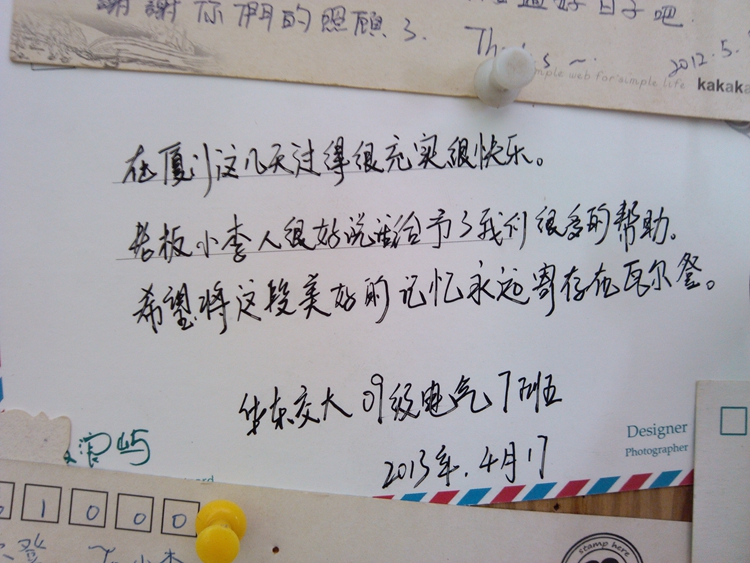 謝謝你們的照顧了.
好日子吧.
2012.5.
simple web for simple life
kakaka
在厦门这几天过得很充实很快乐。
老板小李人很好说话给予了我们很多的帮助。
希望将这段美好的记忆永远寄存在瓦尔登。
华东交大 09级电气7班
2013年.4月17
Designer
Photographer
浪屿
1000
登
小李
stamp here